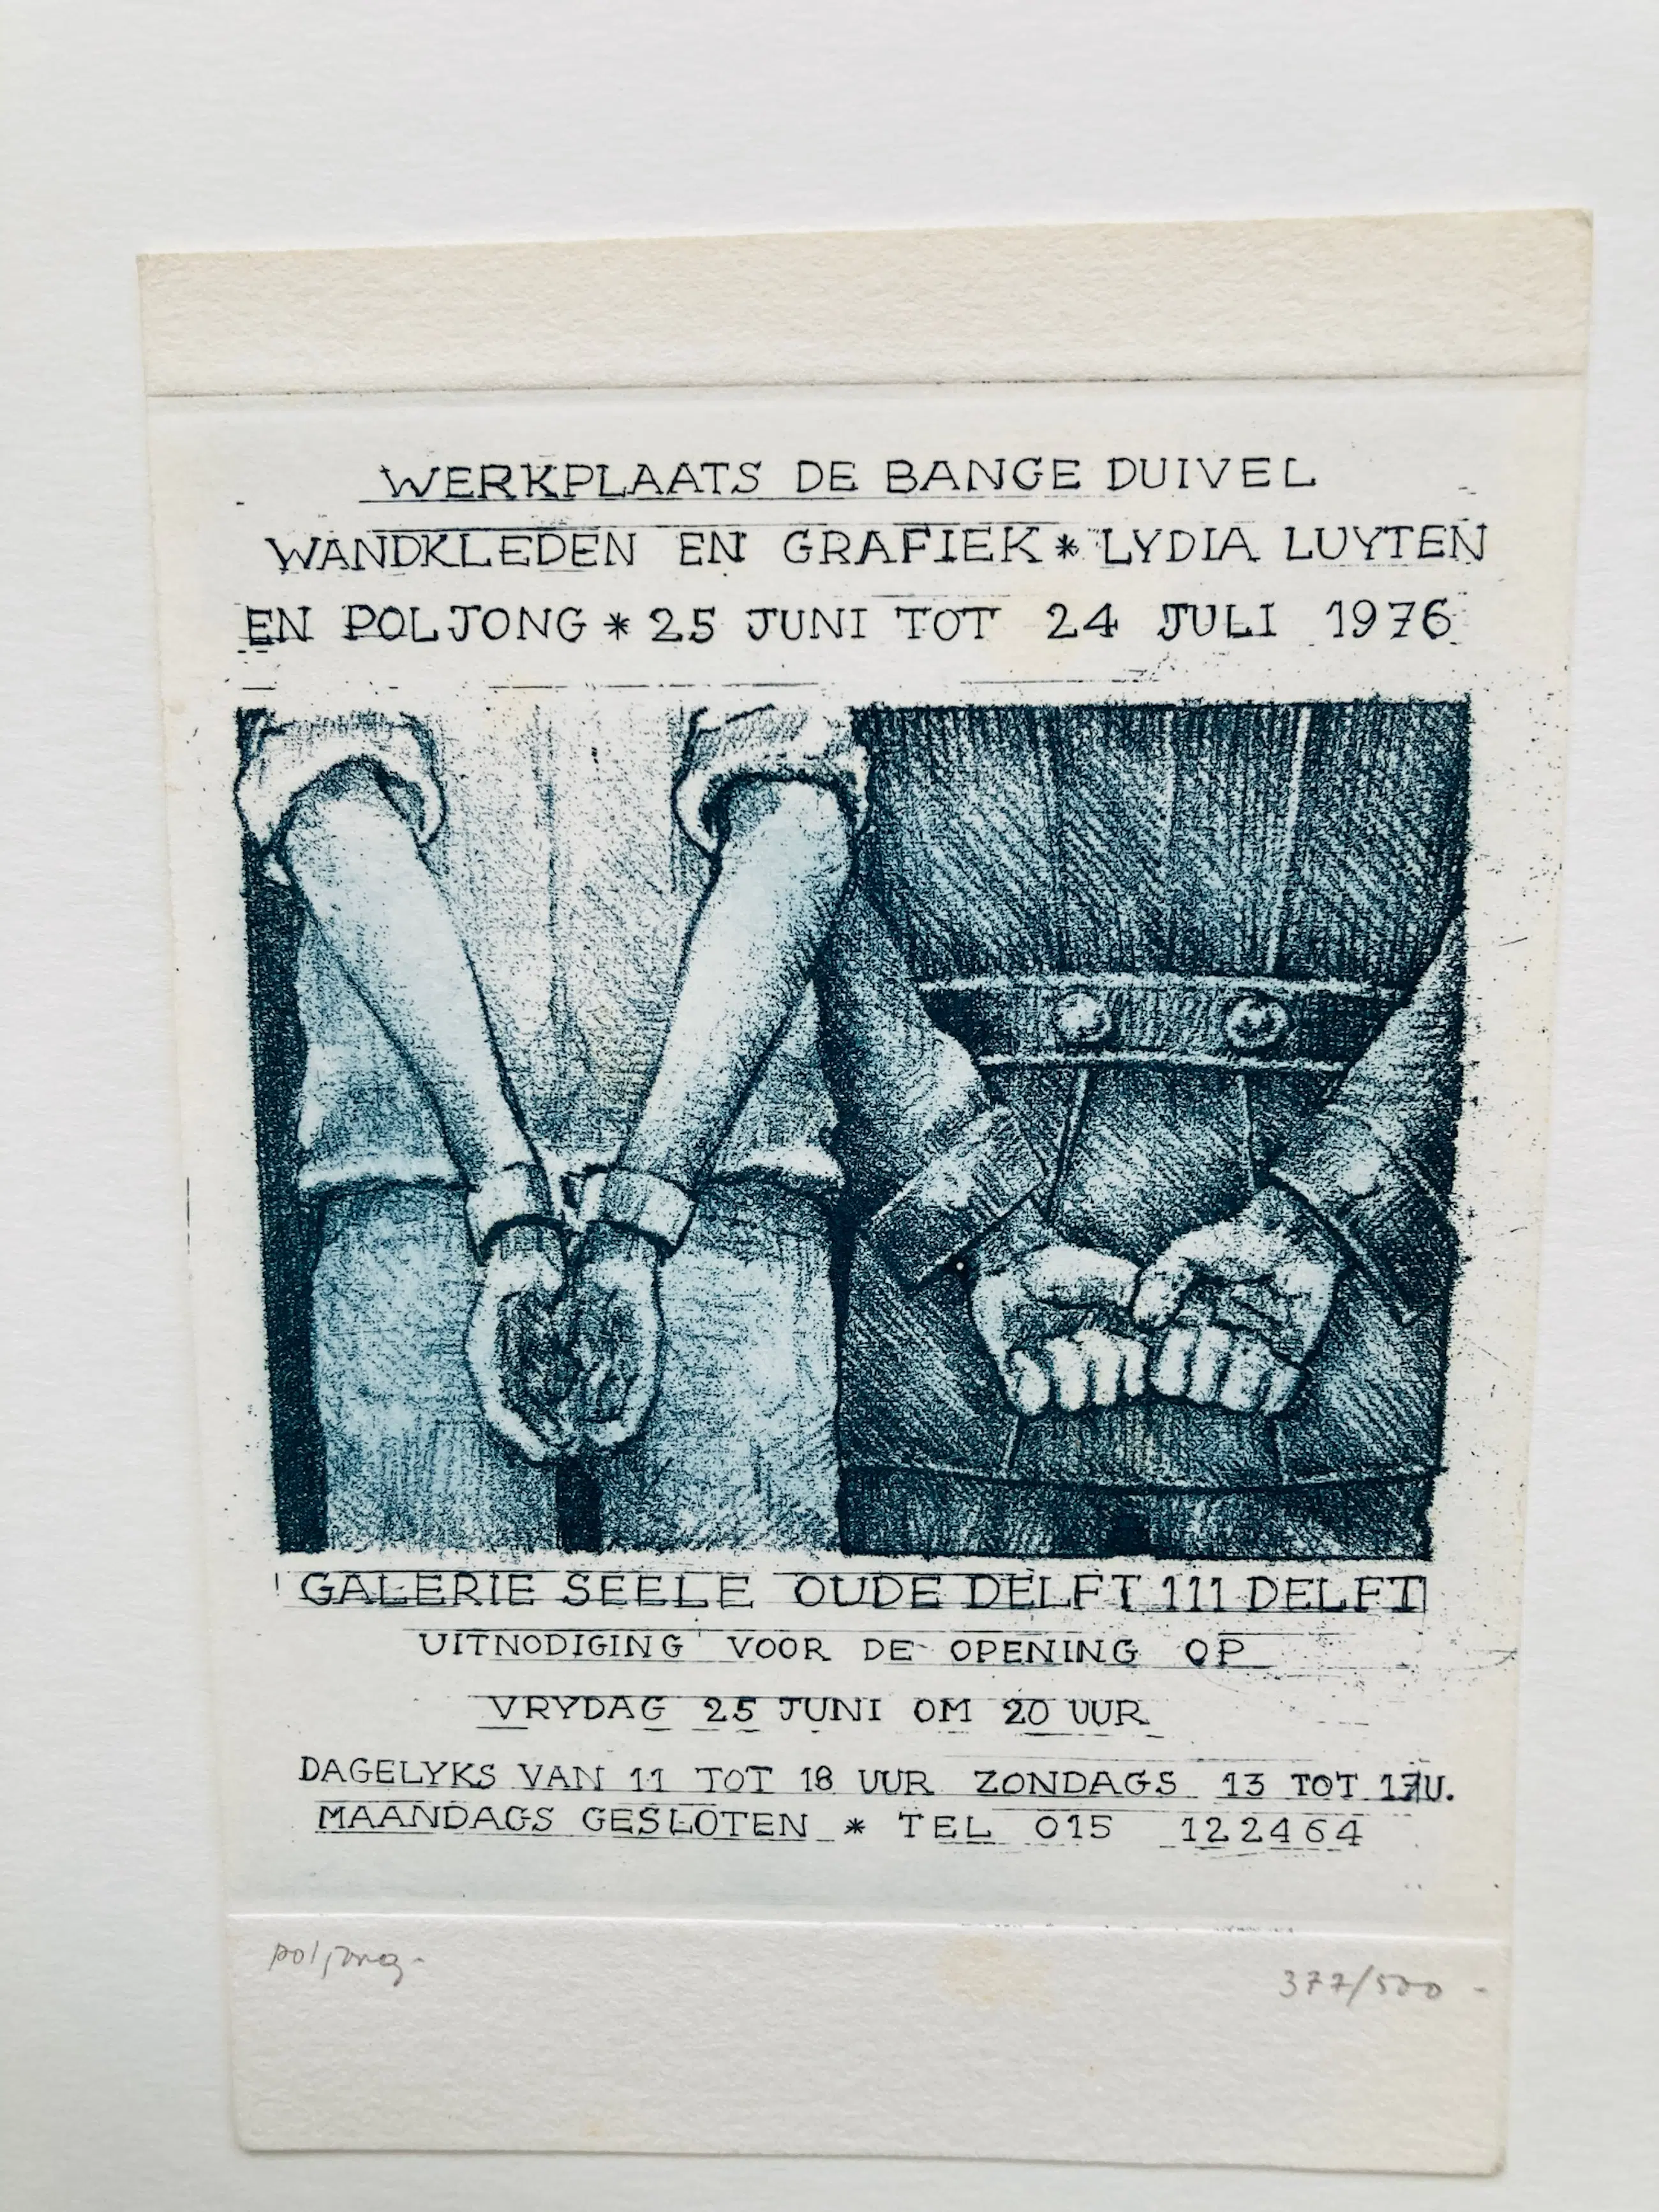 WERKPLAATS DE BANGE DUIVEL
WANDKLEDEN EN GRAFIEK * LYDIA LUYTEN
EN POL JONG * 25 JUNI TOT 24 JULI 1976
GALERIE SEELE OUDE DELFT 111 DELFT
UITNODIGING VOOR DE OPENING OP
VRYDAG 25 JUNI OM 20 UUR
DAGELYKS VAN 11 TOT 18 UUR ZONDAGS 13 TOT 17U.
MAANDAGS GESLOTEN * TEL 015 122464
pol jong -
377/500 -